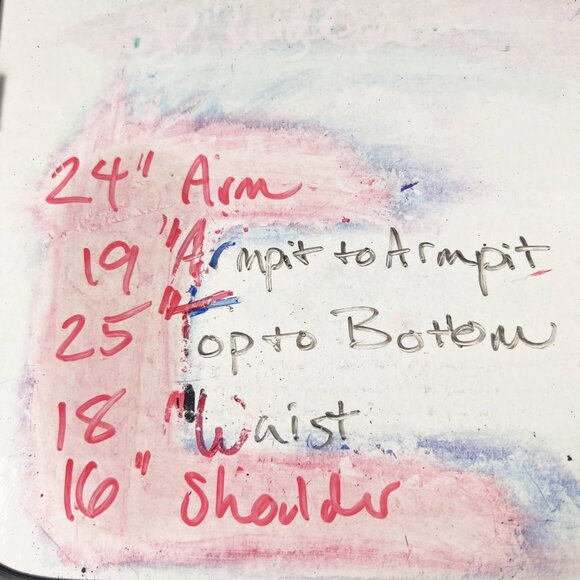 24" Arm
19" Armpit to Armpit
25" Top to Bottom
18" Waist
16" Shoulder